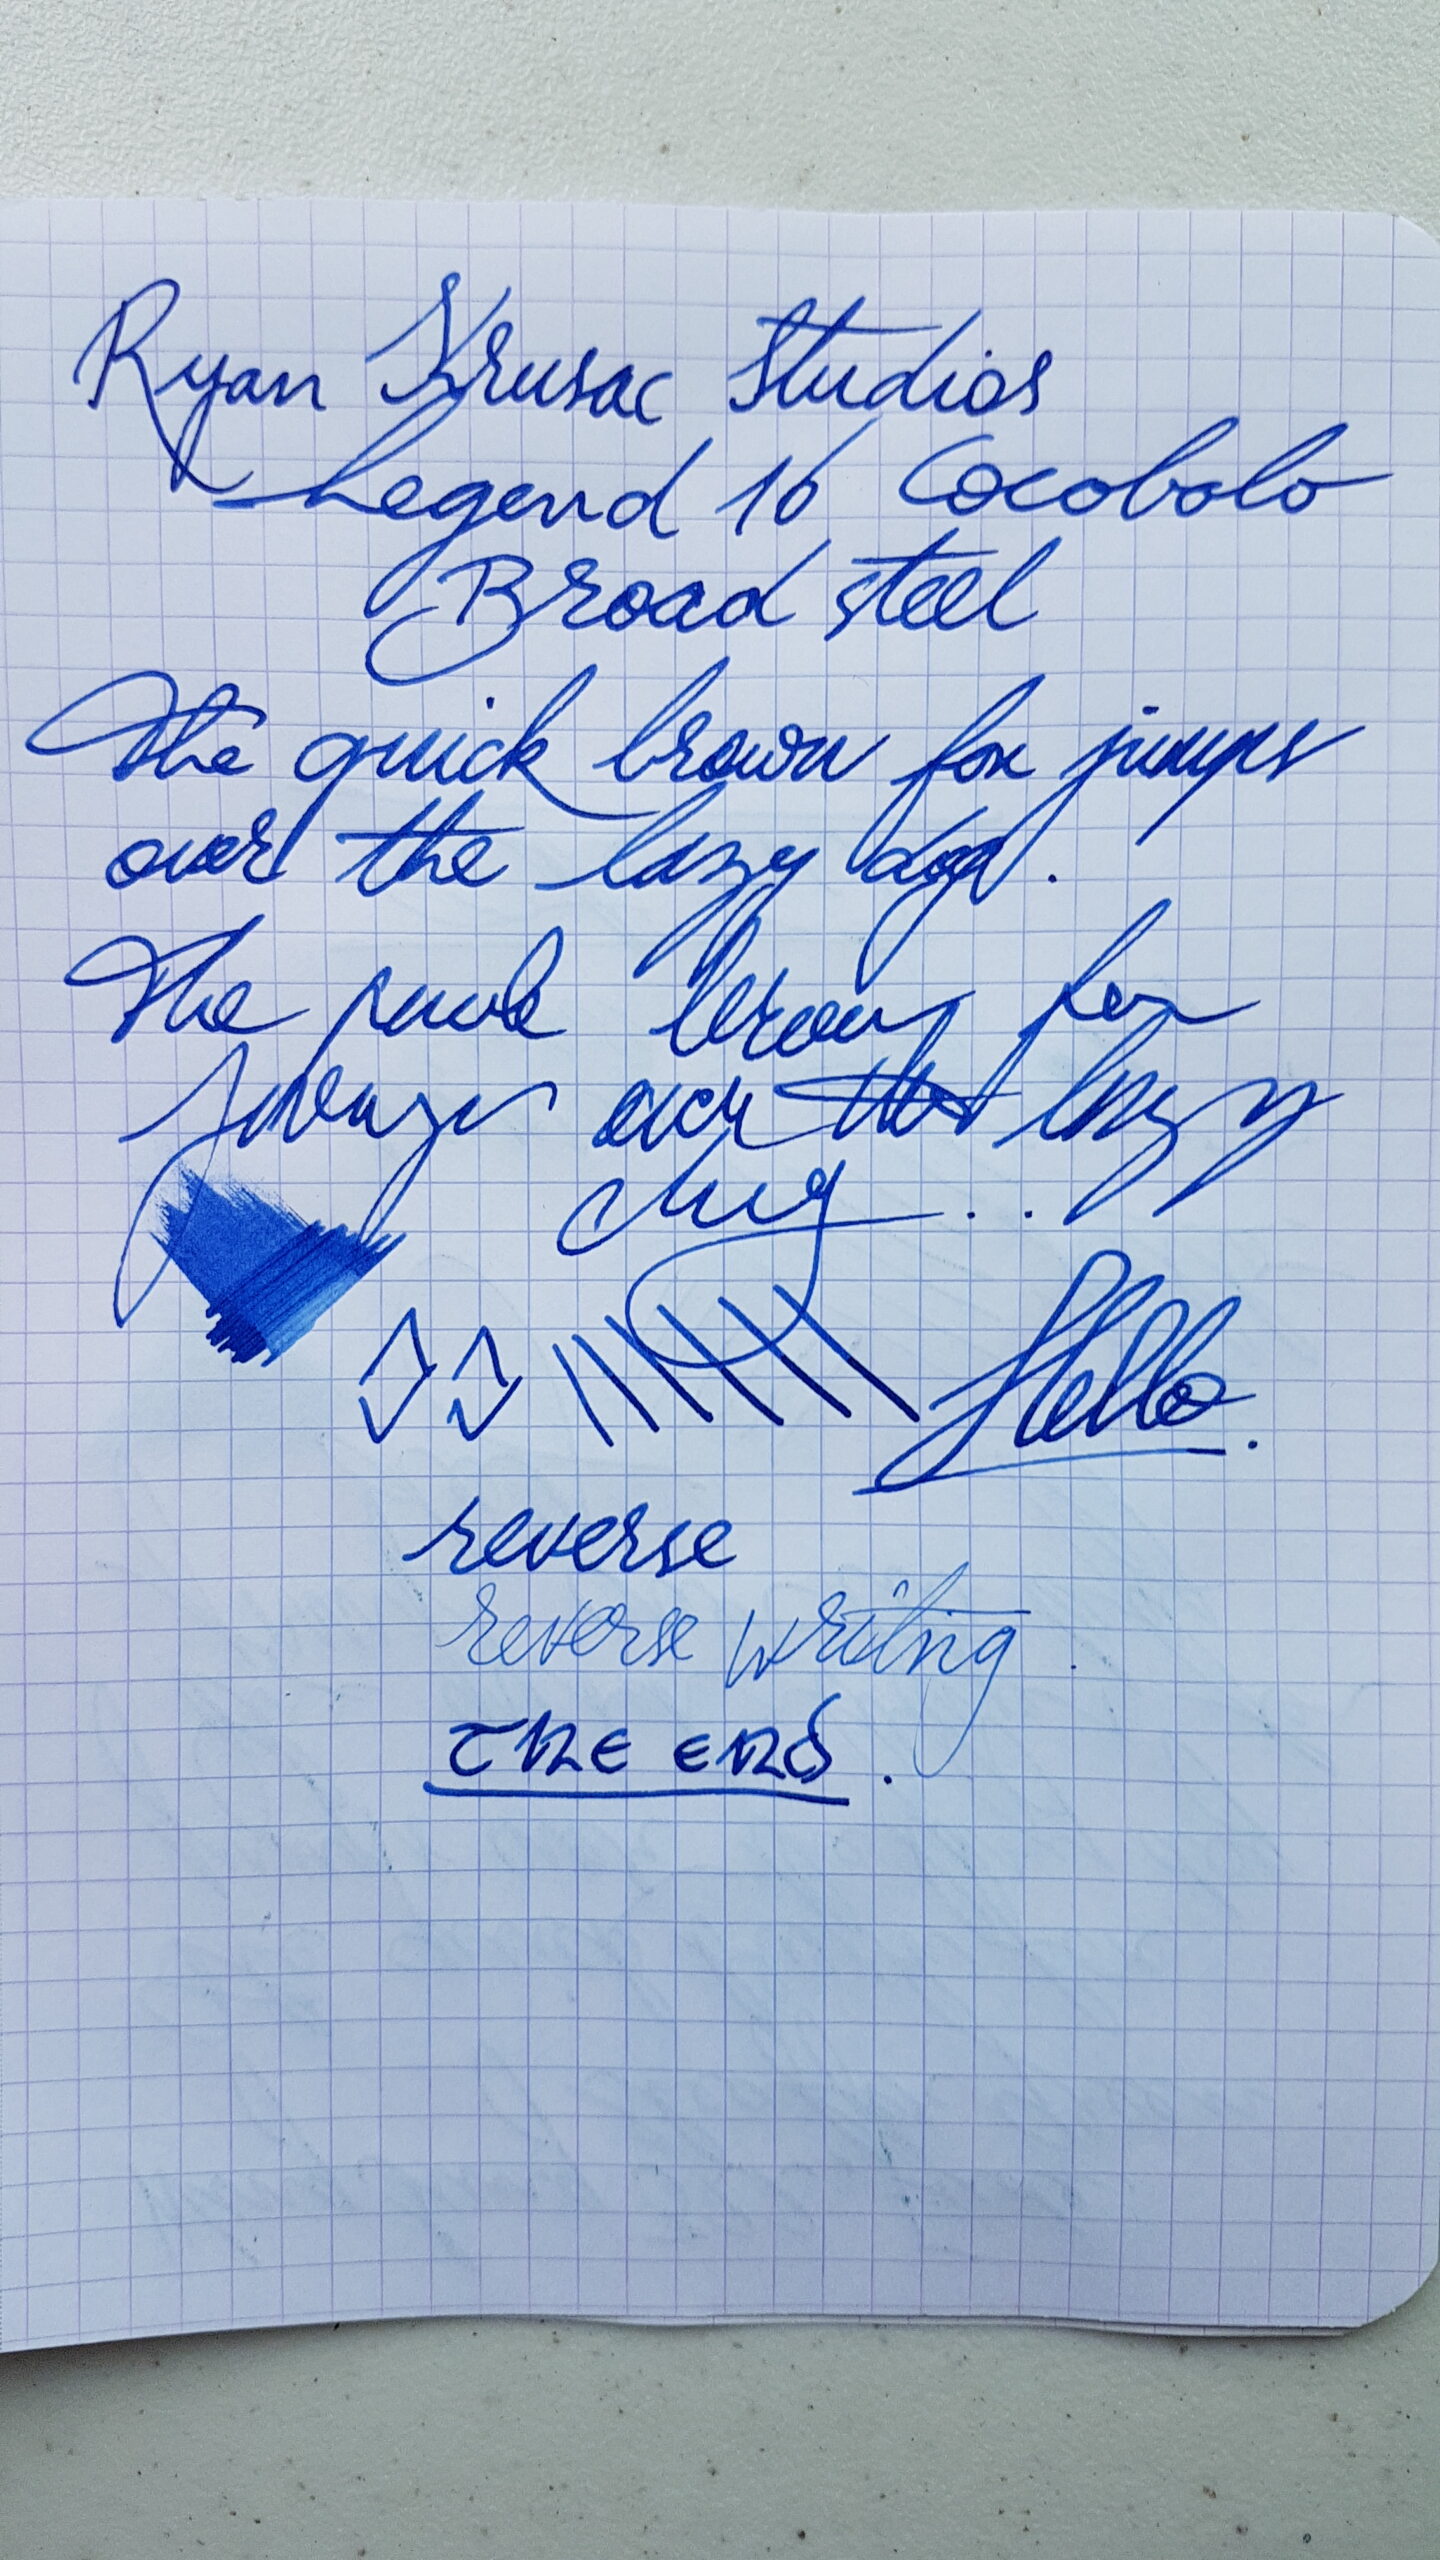 Ryan Krusac Studios
Legend 16 Cocobolo
Broad steel
The quick brown fox jumps
over the lazy dog.
The quick brown fox
jumps over the lazy
dog...
Hello.
reverse
reverse writing.
The end.